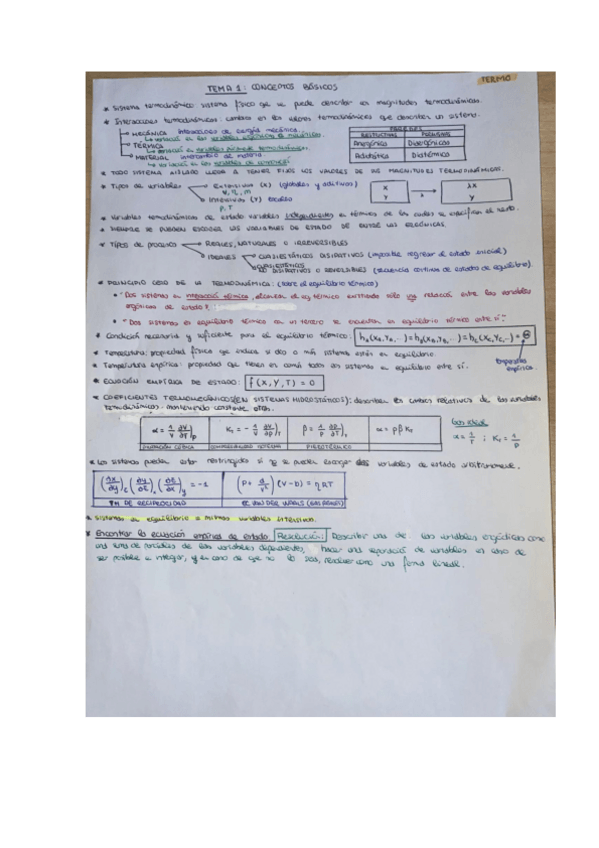 TERMO
TEMA 1: CONCEPTOS BÁSICOS
* Sistema termodinámico: sistema físico que se puede describir en magnitudes termodinámicas.
* Interacciones termodinámicas: cambios en los valores termodinámicos que describen un sistema.
MECÁNICA intercambio de energía mecánica
TÉRMICA
MATERIAL intercambio de materia
PAREDES
RESTRICTIVAS PERMISIVAS
Anergónica Diatérgónicas
Adiabática Diatérmicas
* TODO SISTEMA AISLADO LLEGA A TENER FIJOS LOS VALORES DE SUS MAGNITUDES TERMODINÁMICAS.
* Tipos de variables
Extensivas (X) (globales y aditivas)
V, q, m
Intensivas (Y) locales
P, T
X
Y
λ
λX
Y
* Variables termodinámicas de estado variables independientes en términos de las cuales se especifican el resto.
* SIEMPRE SE PUEDEN ESCOGER LAS VARIABLES DE ESTADO DE ENTRE LAS
* Tipos de procesos
REALES, NATURALES O IRREVERSIBLES
IDEALES
CUASIESTÁTICOS DISIPATIVOS (imposible regresar al estado inicial)
CUASIESTÁTICOS
NO DISIPATIVOS O REVERSIBLES (secuencia continua de estados de equilibrio).
* PRINCIPIO CERO DE LA TERMODINÁMICA: (sobre el equilibrio térmico)
• "Dos sistemas en interacción térmica, alcanzan el eq térmico existiendo sólo una relación entre las variables
• "Dos sistemas en equilibrio térmico con un tercero se encuentran en equilibrio térmico entre sí".
* Condición necesaria y suficiente para el equilibrio térmico:
Temperatura empírica.
* Temperatura: propiedad física que indica si dos o más sistemas están en equilibrio.
* Temperatura empírica: propiedad que tienen en común todos los sistemas en equilibrio entre sí.
* ECUACIÓN EMPÍRICA DE ESTADO: f(X,Y,T) = 0
* COEFICIENTES TERMOMECÁNICOS (EN SISTEMAS HIDROSTÁTICOS): describen los cambios relativos de las variables
termodinámicas manteniendo constante otras.
α = 1/V ∂V/∂T)P
KT = - 1/V ∂V/∂P)T
β = 1/P ∂P/∂T)V
α = PβKT
Gas ideal
α = 1/T ; KT = 1/P
PIEZOTÉRMICO
* Los sistemas pueden estar restringidos si no se pueden escoger dos variables de estado arbitrariamente.
= -1
(P + a/v²)(v-b) = RT
TM DE RECIPROCIDAD
EC VAN DER WAALS (GAS REALES)
* Sistemas en equilibrio = mismas variables intensivas.
* Encontrar la ecuación empírica de estado Resolución: Describir una de las variables ergódicas como
una suma de parciales de las variables dependientes, hacer una separación de variables en caso de
ser posible e integrar, y en caso de que no lo sea, resolver como una forma lineal.